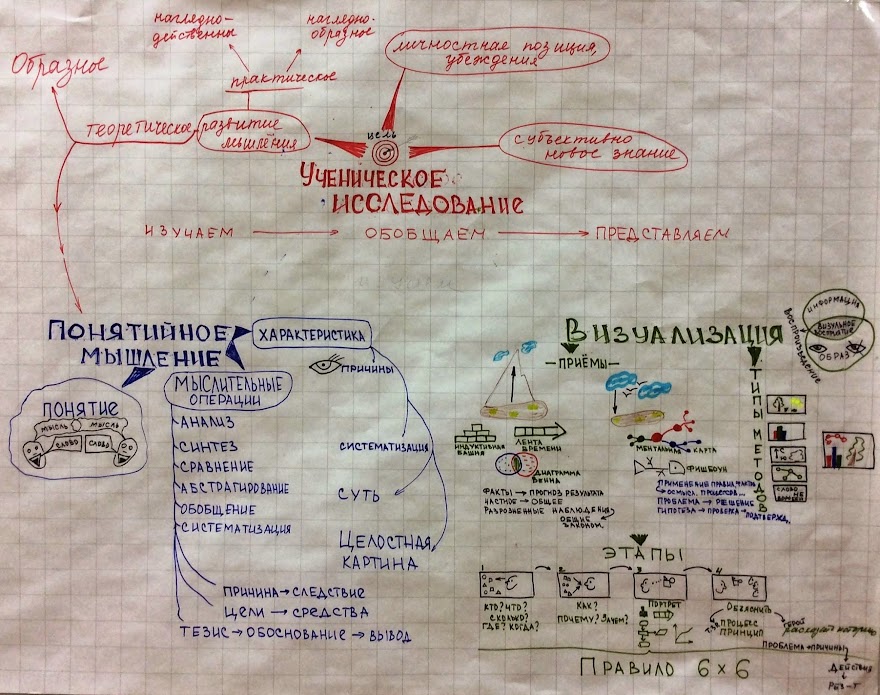 наглядно-
действенны
наглядно-
образное
Образное
практическое
личностная позиция,
убеждения
теоретическое
развитие
мышления
цель
субъективно
новое знание
Ученическое
исследование
изучаем
обобщаем
представляем
Понятийное
мышление
характеристика
причины
систематизация
суть
целостная
картина
понятие
мысль
мысль
слово
слово
мыслительные
операции
анализ
синтез
сравнение
абстрагирование
обобщение
систематизация
причина → следствие
цели → средства
тезис → обоснование → вывод
Визуализация
информация
визульное
восприятие
образ
воспроизведение
приёмы
типы методов
индуктивная
башня
лента
времени
диаграмма
Венна
ментальная карта
фишбоун
факты → прогноз результата
частное → общее
разрозненные наблюдения
общие
законом.
применение правил, факты
осмысл. процессов...
проблема → решение
гипотеза → проверка → подтвержд.
этапы
1
2
3
4
кто? что?
сколько?
где? когда?
как?
почему? зачем?
портрет
объяснить
процесс
принцип
герой
проблема → причины
действия
рез-т
Правило 6×6